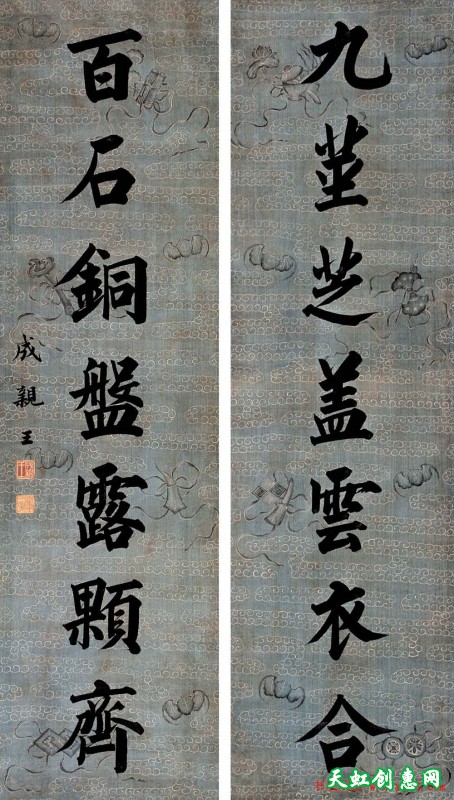 九茎芝盖雲衣合
百石銅盤露顆齊
成親王
天虹创惠网